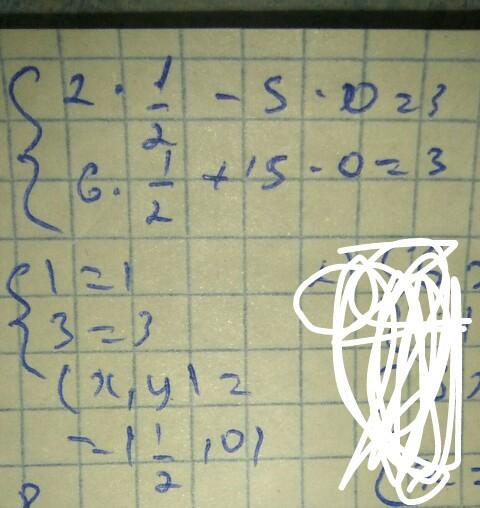 { 2 · 1/2 - 5 · 0 = 3
6 · 1/2 + 15 · 0 = 3
{ 1 = 1
3 = 3
(x, y) =
= (1/2, 0)